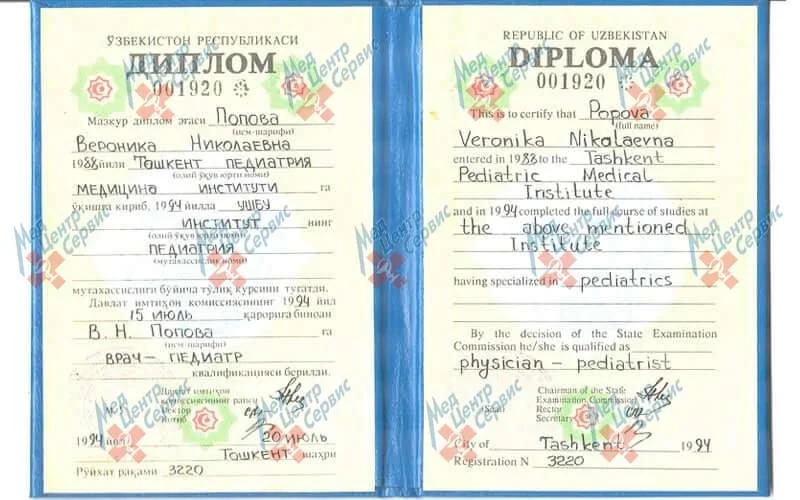 ЎЗБЕКИСТОН РЕСПУБЛИКАСИ
ДИПЛОМ
001920
Мазкур диплом эгаси Попова
(исм-шарифи)
Вероника Николаевна
1988йили Тошкент педиатрия
(олий ўқув юрти номи)
медицина институти га
ўқишга кириб, 1994 йилда ушбу
институт нинг
(олий ўқув юрти номи)
педиатрия
(мутахассислик номи)
мутахассислиги бўйича тўлиқ курсини тугатди.
Давлат имтиҳон комиссиясининг 1994 йил
15 июль қарорига биноан
В. Н. Попова га
(исм-шарифи)
врач - педиатр
квалификацияси берилди.
Давлат имтиҳон
комиссиясининг раиси
Ректор
Котиб
1994йил 20 июль
Тошкент шаҳри
Рўйхат рақами 3220
REPUBLIC OF UZBEKISTAN
DIPLOMA
001920
This is to certify that Popova
(full name)
Veronika Nikolaevna
entered in 1988 to the Tashkent
Pediatric Medical
Institute
and in 1994 completed the full course of studies at
the above mentioned
Institute
having specialized in pediatrics
By the decision of the State Examination
Commission he/she is qualified as
physician - pediatrist
Chairman of the State
Examination Commission
(Seal) Rector
Secretary
City of Tashkent 1994
Registration N 3220
Мед Центр Сервис